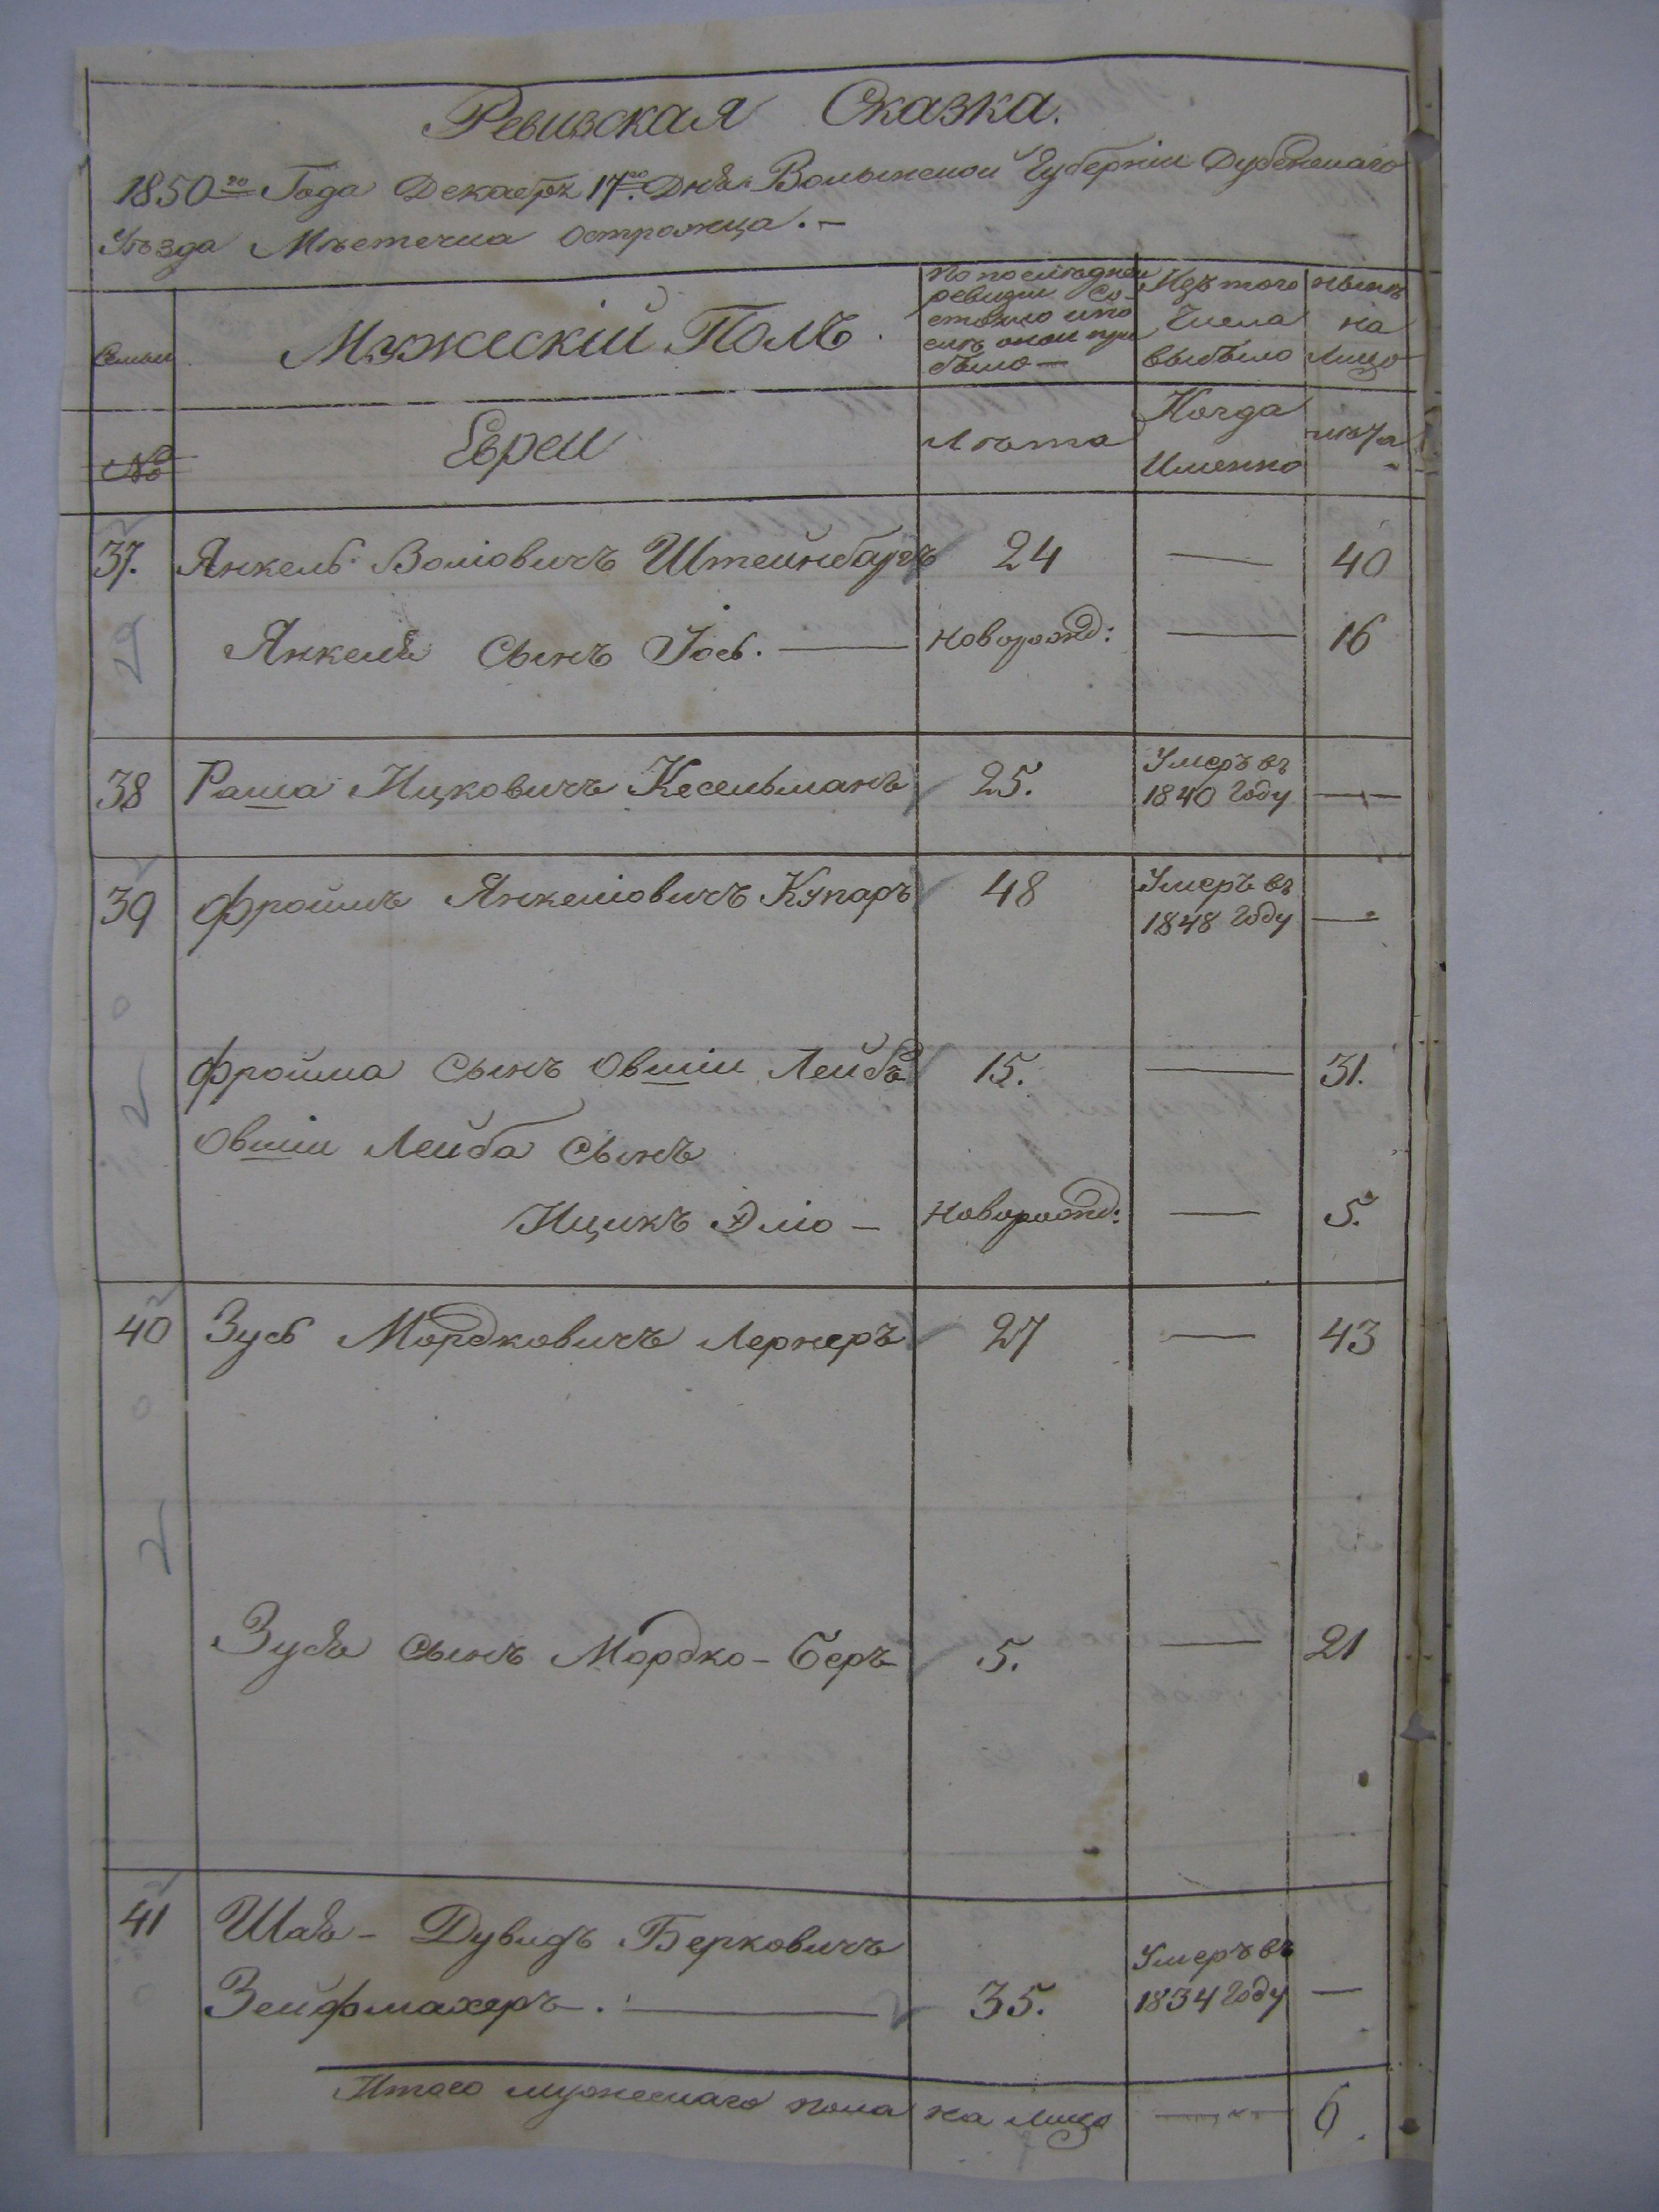 Ревизская Сказка.
1850го Года Декабря 17го Дня Волынской Губерніи Дубенскаго
Уѣзда Мѣстечка Острожца.—
Семьи
Мужескій Полъ.
По последней
ревизіи со-
стояло и по
слѣ оной при
было —
Изъ того
Числа
выбыло
Нынѣ
на
Лицо
№
Евреи
Лѣта
Когда
Именно
лѣта
37. Янкель Волiовичъ Штейнбаргъ 24 — 40
Янкеля Сынъ Іось. — новорожд: — 16
38 Раша Ицковичъ Кесельманъ 25. Умеръ въ
1840 Году —
39 Фроимъ Янкеліовичъ Купаръ 48 Умеръ въ
1848 Году —
Фройма Сынъ Овшіи Лейбъ 15. — 31.
Овшіи Лейба Сынъ
Ицикъ Эліо — Новорожд: — 5.
40 Зусь Мордковичъ Лернеръ 27 — 43
Зуся сынъ Мордко-Беръ 5. — 21
41 Шая- Дувидъ Берковичъ
Зейфмахеръ. — 35. Умеръ въ
1834 Году —
Итого мужескаго пола на лицо — 6.